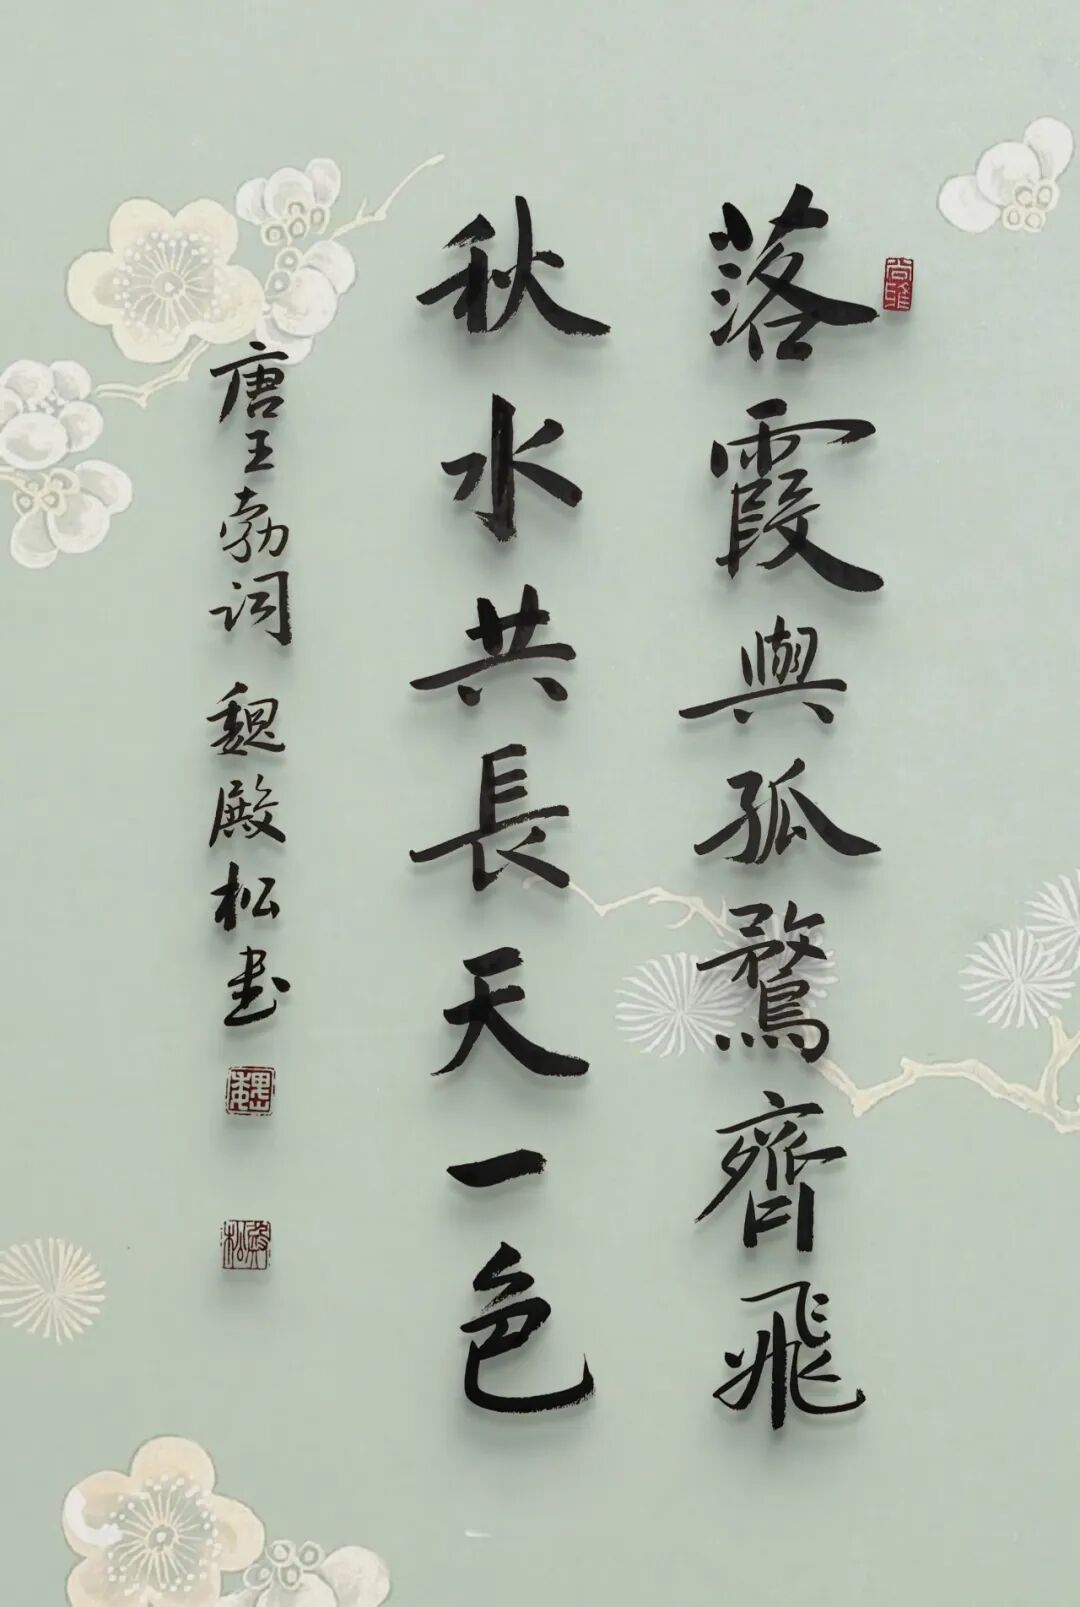 落霞與孤鶩齊飛
秋水共長天一色
唐王勃词 魏殿松书
尚雅
魏
殿松